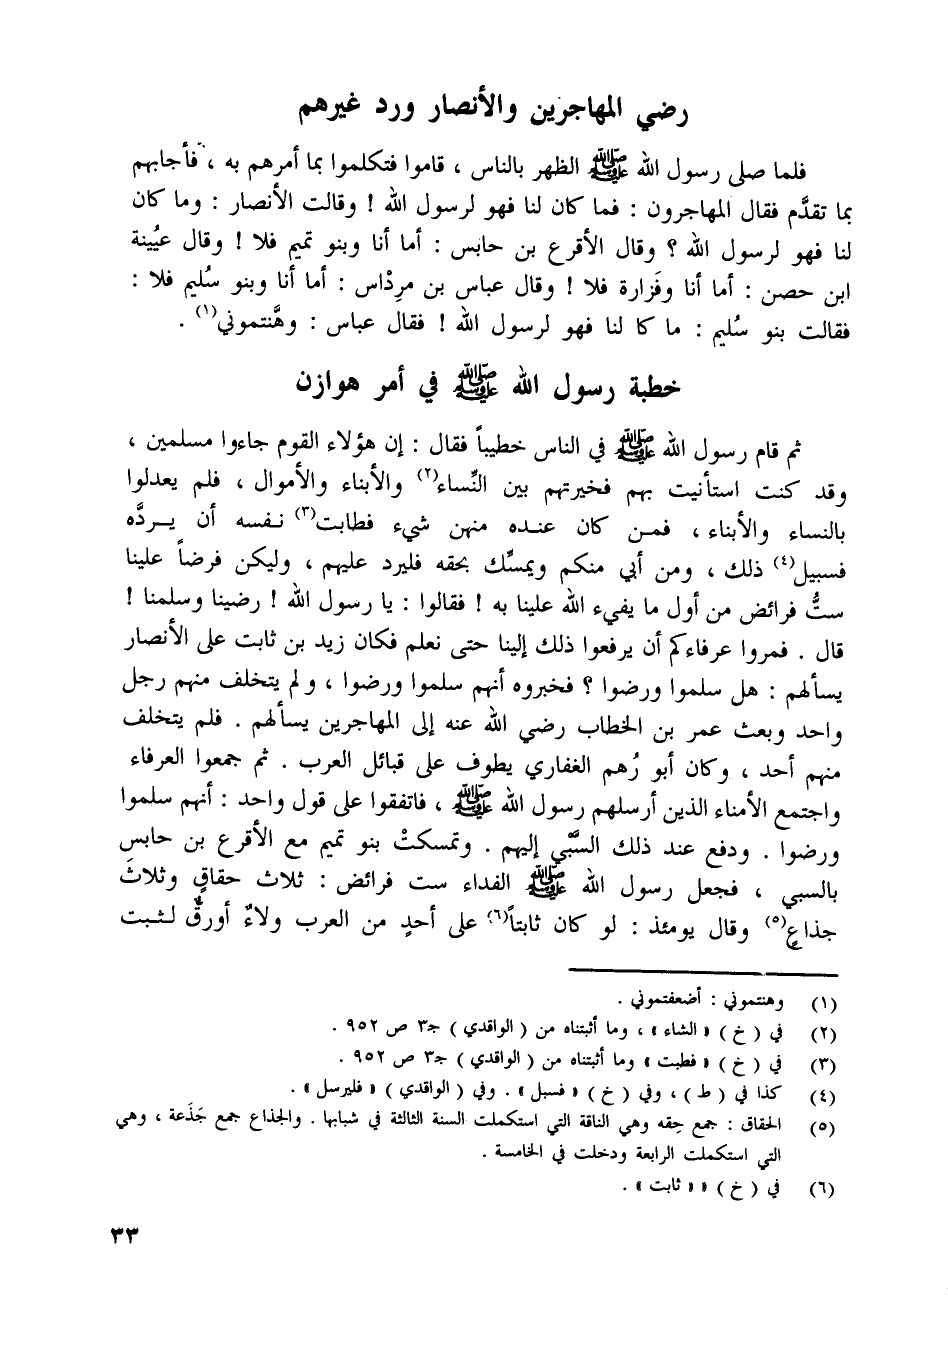 رضي المهاجرين والأنصار ورد غيرهم
فلما صلى رسول الله ﷺ الظهر بالناس ، قاموا فتكلموا بما أمرهم به ، فأجابهم
بما تقدَّم فقال المهاجرون : فما كان لنا فهو لرسول الله ! وقالت الأنصار : وما كان
لنا فهو لرسول الله ؟ وقال الأقرع بن حابس : أما أنا وبنو تميم فلا ! وقال عيُينة
ابن حصن : أما أنا وفَزارة فلا ! وقال عباس بن مرِدْاس : أما أنا وبنو سُليم فلا :
فقالت بنو سُليم : ما كا لنا فهو لرسول الله ! فقال عباس : وهَّنتموني(١) .
خطبة رسول الله ﷺ في أمر هوازن
ثم قام رسول الله ﷺ في الناس خطيباً فقال : إن هؤلاء القوم جاءوا مسلمين ،
وقد كنت استأنيت بهم فخيرتهم بين النِّساء(٢) والأبناء والأموال ، فلم يعدلوا
بالنساء والأبناء ، فمـن كان عنـده منهن شيء فطابت(٣) نـفسه أن يـردَّه
فسبيل(٤) ذلك ، ومن أبي منكم ويمسِّك بحقه فليرد عليهم ، وليكن فرضاً علينا
ستُّ فرائض من أول ما يفيء الله علينا به ! فقالوا : يا رسول الله ! رضينا وسلمنا !
قال . فمروا عرفاءكم أن يرفعوا ذلك إلينا حتى نعلم فكان زيد بن ثابت على الأنصار
يسألهم : هل سلموا ورضوا ؟ فخبروه أنهم سلموا ورضوا ، ولم يتخلف منهم رجل
واحد وبعث عمر بن الخطاب رضي الله عنه إلى المهاجرين يسألهم . فلم يتخلف
منهم أحد ، وكان أبو رُهم الغفاري يطوف على قبائل العرب . ثم جمعوا العرفاء
واجتمع الأمناء الذين أرسلهم رسول الله ﷺ ، فاتفقوا على قول واحد : أنهم سلموا
ورضوا . ودفع عند ذلك السَّبي إليهم . وتمسكتْ بنو تميم مع الأقرع بن حابس
بالسبي ، فجعل رسول الله ﷺ الفداء ست فرائض : ثلاث حقاقٍ وثلاثَ
جذاعٍ(٥) وقال يومئذ : لو كان ثابتاً(٦) على أحدٍ من العرب ولاءٌ أورقٌّ لـثـبت
(١) وهنتموني : أضعفتموني .
(٢) في ( خ ) « الشاء » ، وما أثبتناه من ( الواقدي ) جـ٣ ص ٩٥٢ .
(٣) في ( خ ) « فطبت » وما أثبتناه من ( الواقدي ) جـ٣ ص ٩٥٢ .
(٤) كذا في ( ط ) ، وفي ( خ ) « فسبل » . وفي ( الواقدي ) « فليرسل » .
(٥) الحقاق : جمع حِقه وهي الناقة التي استكملت السنة الثالثة في شبابها . والجذاع جمع جَذَعة ، وهي
التي استكملت الرابعة ودخلت في الخامسة .
(٦) في ( خ ) « « ثابت » .
٣٣